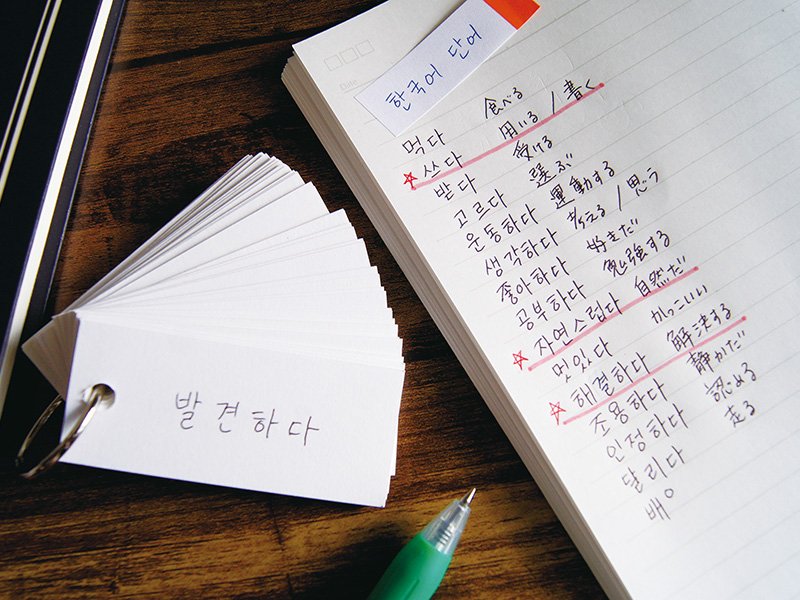 한국어 단어
먹다 食べる
☆ 쓰다 用いる / 書く
받다 受ける
고르다 選ぶ
운동하다 運動する
생각하다 考える / 思う
좋아하다 好きだ
공부하다 勉強する
☆ 자연스럽다 自然だ
멋있다 かっこいい
☆ 해결하다 解決する
조용하다 静かだ
인정하다 認める
달리다 走る
배우
발견하다